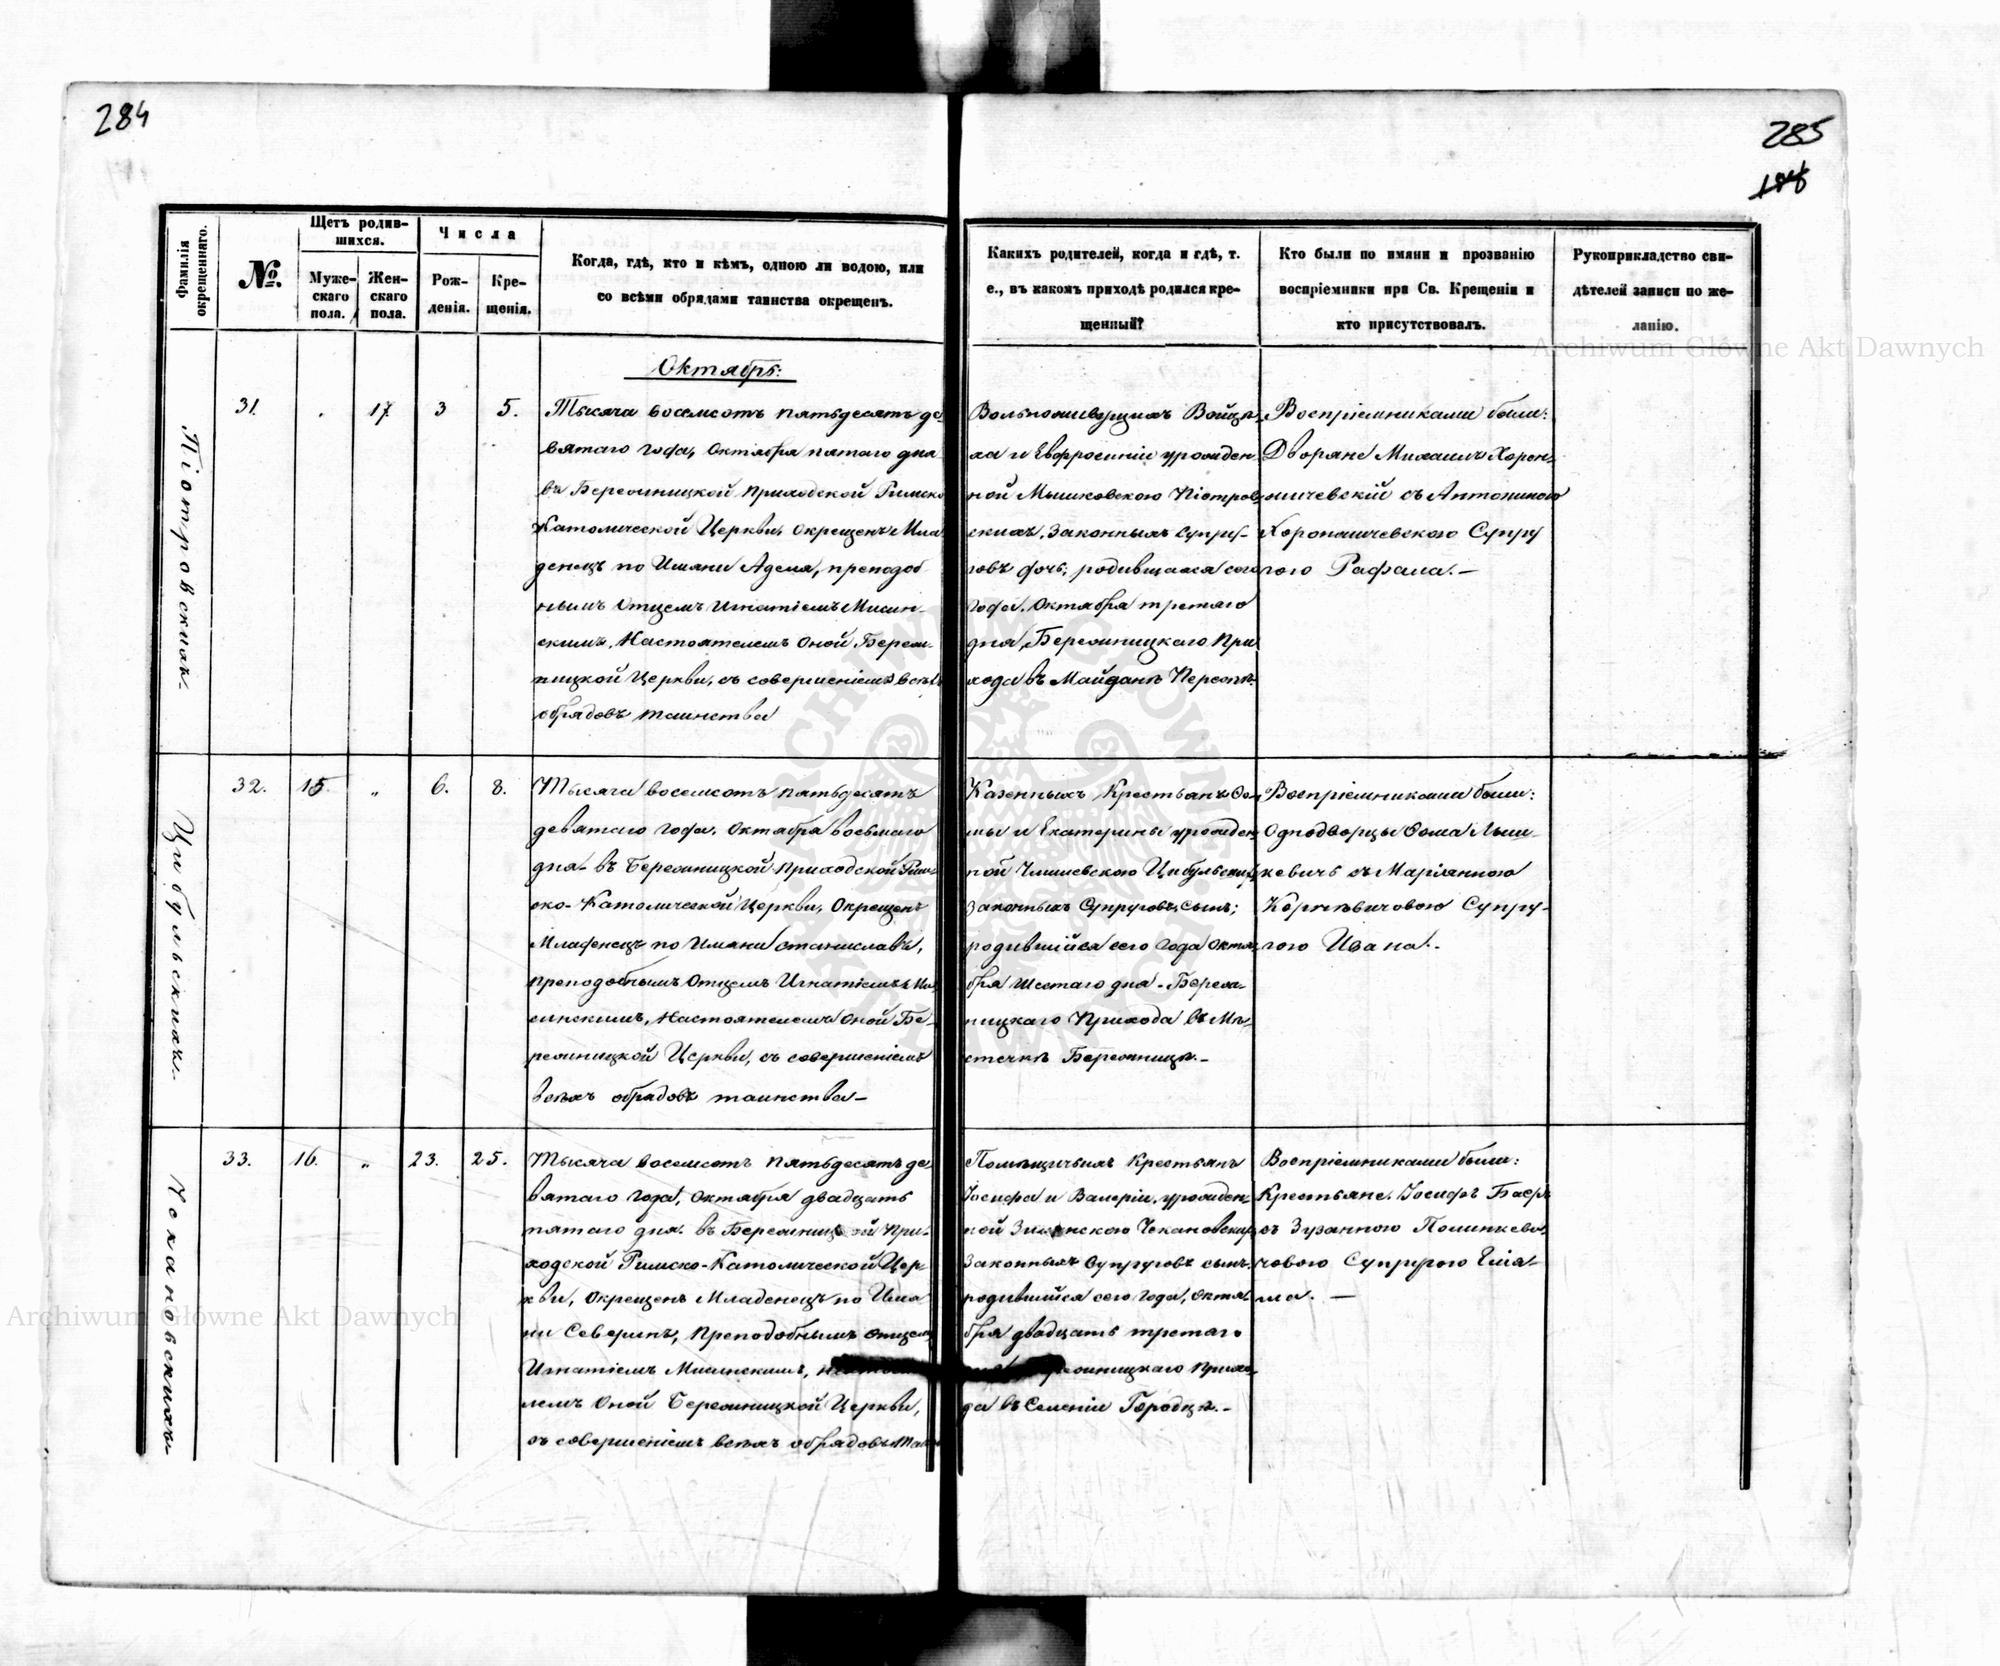 284
285
Фамилія окрещеннаго.
№.
Щетъ родив-
шихся.
Муже-
скаго
пола.
Жен-
скаго
пола.
Числа
Рож-
денія.
Кре-
щенія.
Когда, гдѣ, кто и кѣмъ, одною ли водою, или
со всѣми обрядами таинства окрещенъ.
Какихъ родителей, когда и гдѣ, т.
е., въ какомъ приходѣ родился кре-
щенный?
Кто были по имяни и прозванію
воспріемники при Св. Крещеніи и
кто присутствовалъ.
Рукоприкладство сви-
дѣтелей записи по же-
ланію.
Archiwum Główne Akt Dawnych
Піотровскихъ.
31.
17.
3
5.
Октябрь:
Тысяча восемсотъ пятьдесятъ де-
вятаго года, Октября пятаго дня
въ Бережницкой Приходской Римско
Католической Церкви, Окрещенъ Мла
денецъ по Имяни Аделя, преподоб
нымъ Отцемъ Игнатіемъ
скимъ, Настоятелемъ Оной Береж-
ницкой Церкви, съ совершеніемъ всѣхъ
обрядовъ таинства
Вольноживущихъ Войцѣ-
ха и Евфросиніи урожден
ной Мышковскою Піотров
скихъ, Законныхъ Супру-
говъ дочь, родившаяся сего
Года, Октября третяго
дня, Бережницкаго При
хода въ Майданѣ
Воспріемниками были:
Дворяне Михаилъ
съ Антониною
Супру
гою Рафала.-
Цибульскихъ.
32.
15.
"
6.
8.
Тысяча восемсотъ пятьдесятъ
девятаго года, Октября восьмаго
дня въ Бережницкой Приходской Рим-
ско-Католической Церкви, Окрещенъ
Младенецъ по Имяни Станиславъ,
преподобнымъ Отцемъ Игнатіемъ
Настоятелемъ Оной Бе-
режницкой Церкви, съ совершеніемъ
всѣхъ обрядовъ таинства-
Казенныхъ Крестьянъ Ѳо-
мы и Екатерины урожден
ной Цибульскихъ
Законныхъ Супруговъ, сынъ;
родившійся сего Года Октя
бря шестаго дня - Береж-
ницкаго Прихода въ Мѣ-
стечкѣ Бережницѣ.-
Воспріемниками были:
Однодворцы Ѳома
кевичъ съ Маріянною
Супру-
гою Ивана.-
Чекановскихъ
33.
16.
"
23.
25.
Тысяча восемсотъ пятьдесятъ де-
вятаго года, Октября двадцать
пятаго дня въ Бережницкой При-
ходской Римско-Католической Цер
кви, Окрещенъ Младенецъ по Имя
ни Северинъ, Преподобнымъ Отцемъ
Игнатіемъ
лемъ Оной Бережницкой Церкви,
съ совершеніемъ всѣхъ обрядовъ
Помѣщичьихъ Крестьянъ
Іосифа и Валеріи, урожден-
ной Чекановских
Законныхъ Супруговъ сынъ
родившійся сего Года, Октя-
бря двадцать третяго
Прихо-
да въ Селеніи Городцѣ.-
Воспріемниками были:
Крестьяне, Іосифъ
съ Зузанною
Супругою
Archiwum Główne Akt Dawnych